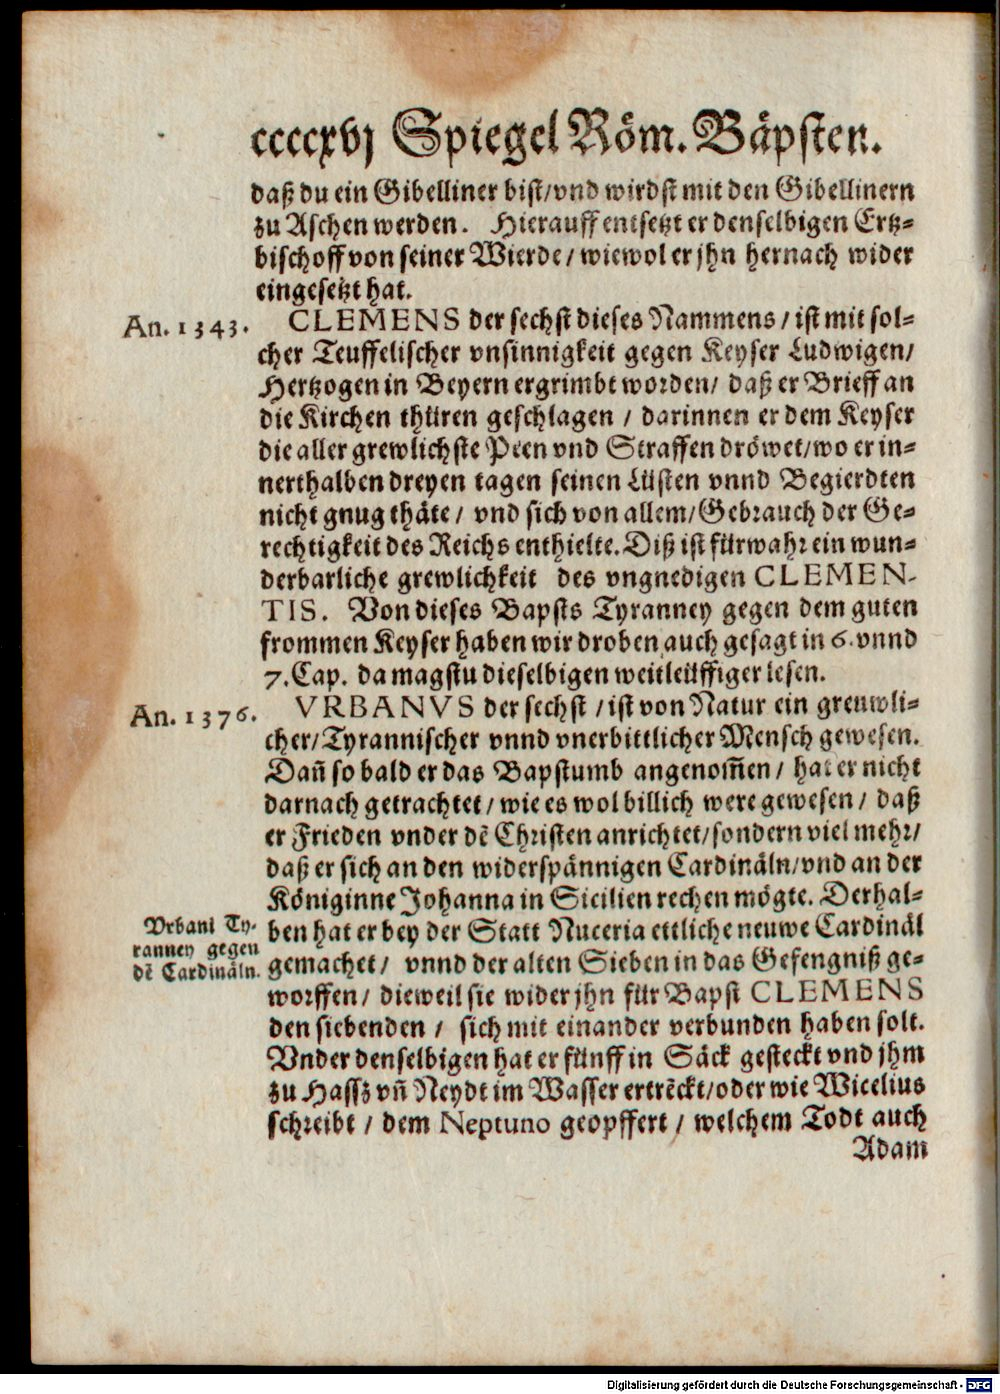 ccccxvj Spiegel Röm. Bäpsten.
daß du ein Gibelliner bist/vnd wirdst mit den Gibellinern
zu Aschen werden. Hierauff entsetzt er denselbigen Ertz-
bischoff von seiner Wierde/ wiewol er jhn hernach wider
eingesetzt hat.
An. 1343.
CLEMENS der sechst dieses Nammens/ ist mit sol-
cher Teuffelischer vnsinnigkeit gegen Keyser Ludwigen/
Hertzogen in Beyern ergrimbt worden/ daß er Brieff an
die Kirchen thüren geschlagen / darinnen er dem Keyser
die aller grewlichste Peen vnd Straffen dröwet/wo er in-
nerthalben dreyen tagen seinen Lüsten vnnd Begierdten
nicht gnug thäte/ vnd sich von allem/Gebrauch der Ge-
rechtigkeit des Reichs enthielte. Diß ist fürwahr ein wun-
derbarliche grewlichkeit des vngnedigen CLEMEN-
TIS. Von dieses Bapsts Tyranney gegen dem guten
frommen Keyser haben wir droben auch gesagt in 6. vnnd
7. Cap. da magstu dieselbigen weitleüffiger lesen.
An. 1376.
VRBANVS der sechst /ist von Natur ein greuwli-
cher/Tyrannischer vnnd vnerbittlicher Mensch gewesen.
Dañ so bald er das Bapstumb angenom̃en/ hat er nicht
darnach getrachtet/ wie es wol billich were gewesen/ daß
er Frieden vnder dẽ Christen anrichtet/sondern viel mehr/
daß er sich an den widerspännigen Cardinäln/vnd an der
Königinne Johanna in Sicilien rechen mögte. Derhal-
Vrbani Ty-
ranney gegen
dẽ Cardinäln.
ben hat er bey der Statt Nuceria ettliche neuwe Cardinäl
gemachet/ vnnd der alten Sieben in das Gefengniß ge-
worffen/ dieweil sie wider jhn für Bapst CLEMENS
den siebenden / sich mit einander verbunden haben solt.
Vnder denselbigen hat er fünff in Säck gesteckt vnd jhm
zu Hassz vñ Neydt im Wasser ertrẽckt/oder wie Wicelius
schreibt / dem Neptuno geopffert / welchem Todt auch
Adam
Digitalisierung gefördert durch die Deutsche Forschungsgemeinschaft - DFG